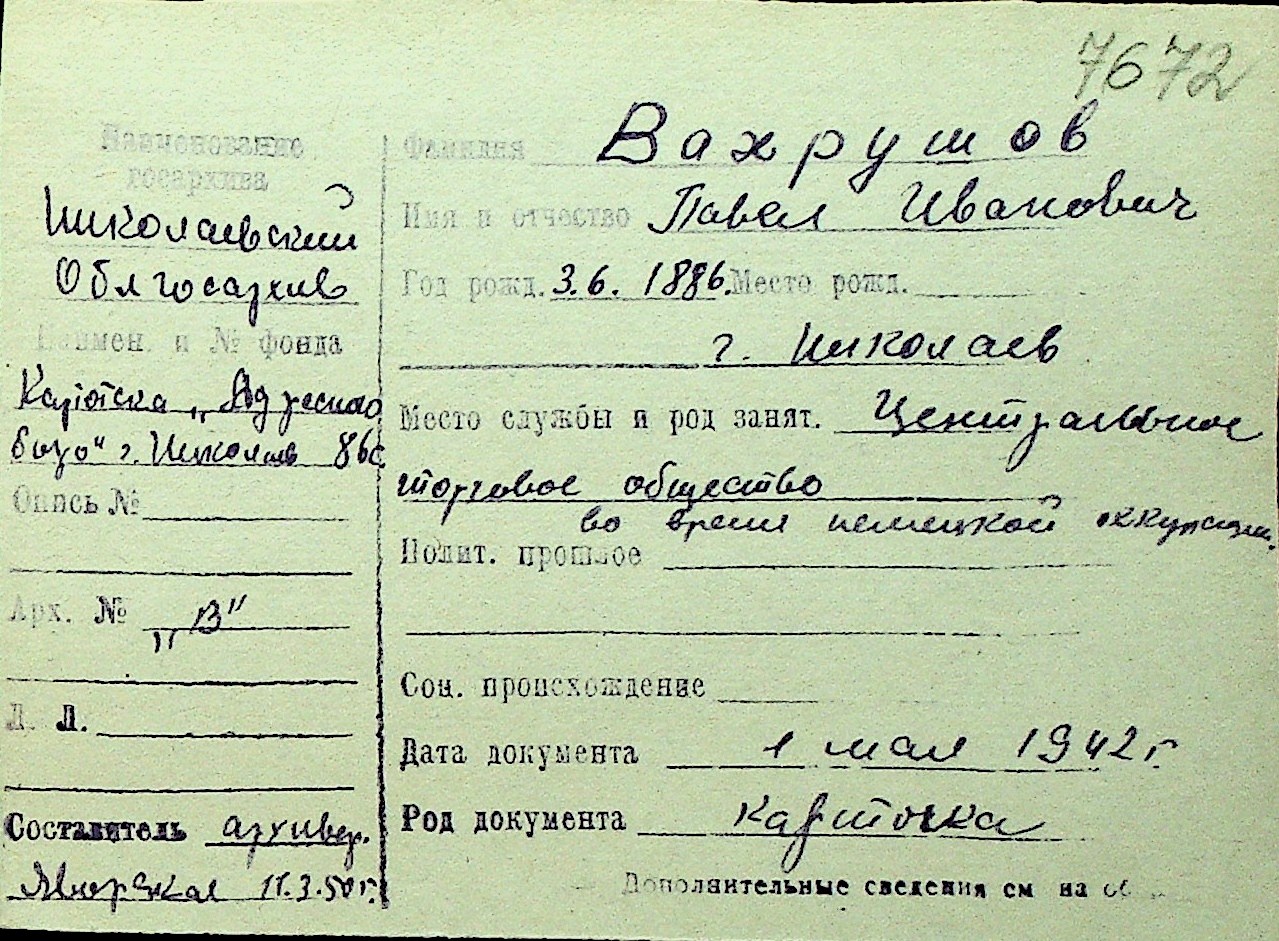 7672
Наименование
госархива
Николаевский
Облгосархив
Наимен. и № фонда
Картотека „Адресного
бюро“ г. Николаев 86с
Опись №
Арх. № „В“
Л. Л.
Составитель архивар.
11.3.50 г.
Фамилия Вахрушов
Имя и отчество Павел Иванович
Год рожд. 3.6. 1886. Место рожд.
г. Николаев
Место службы и род занят. Центральное
торговое общество
во время немецкой оккупации.
Полит. прошлое
Соц. происхождение
Дата документа 1 мая 1942 г.
Род документа карточка
Дополнительные сведения см на об